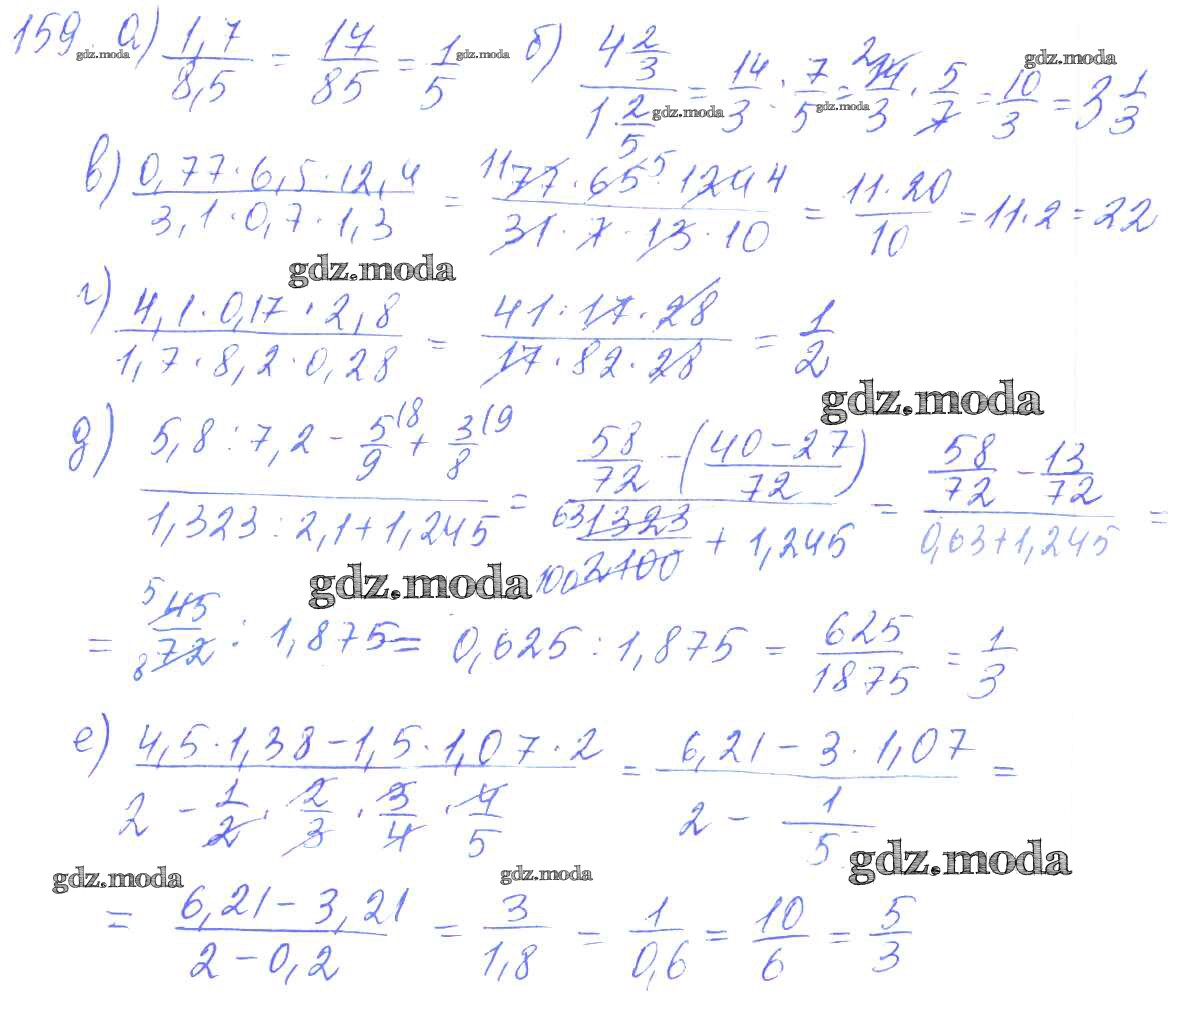 159. а) 1,7/8,5 = 17/85 = 1/5 б) 4 2/3 / 1 2/5 = 14/3 : 7/5 = 2 14/3 · 5/7 = 10/3 = 3 1/3
gdz.moda gdz.moda gdz.moda gdz.moda gdz.moda
в) 0,77·6,5·12,4 / 3,1·0,7·1,3 = 11 77·65 5·124 4 / 31·7·13·10 = 11·20/10 = 11·2 = 22
gdz.moda
г) 4,1·0,17·2,8 / 1,7·8,2·0,28 = 41·17·28 / 17·82·28 = 1/2
gdz.moda
д) 5,8:7,2 - 5/9 (8 + 3/8 (9 / 1,323:2,1+1,245 = 58/72 - (40-27/72) / 63 1323/100 2100 + 1,245 = 58/72 - 13/72 / 0,63+1,245 =
gdz.moda
= 5 45/8 72 : 1,875 = 0,625:1,875 = 625/1875 = 1/3
е) 4,5·1,38-1,5·1,07·2 / 2 - 1/2·2/3·3/4·4/5 = 6,21-3·1,07 / 2 - 1/5 =
gdz.moda gdz.moda gdz.moda
= 6,21-3,21 / 2-0,2 = 3/1,8 = 1/0,6 = 10/6 = 5/3